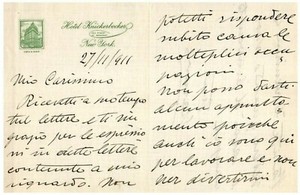 Hotel Knickerbocker
New-York
27/11/911
Mio Carissimo
Ricevetti a suo tempo
tua lettera e ti rin
grazio per le espressio
ni in dette lettere
contenute a mio
riguardo. Non
potetti rispondere
subito causa le
molteplici occu
pazioni
Non posso darti
alcun appunta
mento poichè
anch'io sono qui
per lavorare e non
per divertirmi